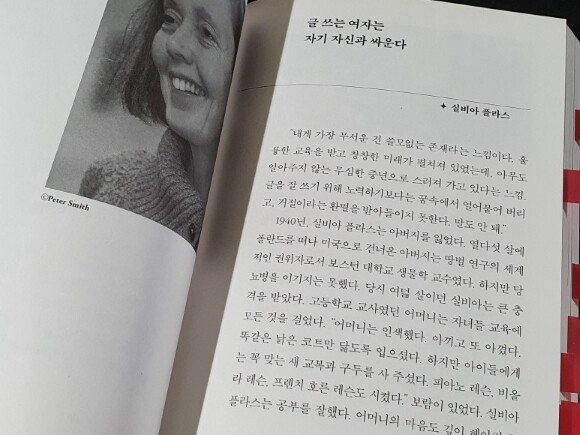 ©Peter Smith
글 쓰는 여자는
자기 자신과 싸운다
✦ 실비아 플라스
"내게 가장 무서운 건 쓸모없는 존재라는 느낌이다. 훌
륭한 교육을 받고 창창한 미래가 펼쳐져 있었는데, 아무도
알아주지 않는 무심한 중년으로 스러져 가고 있다는 느낌.
글을 잘 쓰기 위해 노력하기보다는 꿈속에서 얼어붙어 버리
고, 거절이라는 환멸을 받아들이지 못한다. 말도 안 돼."
1940년, 실비아 플라스는 아버지를 잃었다. 열다섯 살에
폴란드를 떠나 미국으로 건너온 아버지는 땅벌 연구의 세계
적인 권위자로서 보스턴 대학교 생물학 교수였다. 하지만 당
뇨병을 이기지는 못했다. 당시 여덟 살이던 실비아는 큰 충
격을 받았다. 고등학교 교사였던 어머니는 자녀들 교육에
모든 것을 걸었다. "어머니는 인색했다. 아끼고 또 아꼈다.
똑같은 낡은 코트만 닳도록 입으셨다. 하지만 아이들에게
는 꼭 맞는 새 교복과 구두를 사 주셨다. 피아노 레슨, 비올
라 레슨, 프렌치 호른 레슨도 시켰다." 보람이 있었다. 실비아
플라스는 공부를 잘했다. 어머니의 마음도 깊이